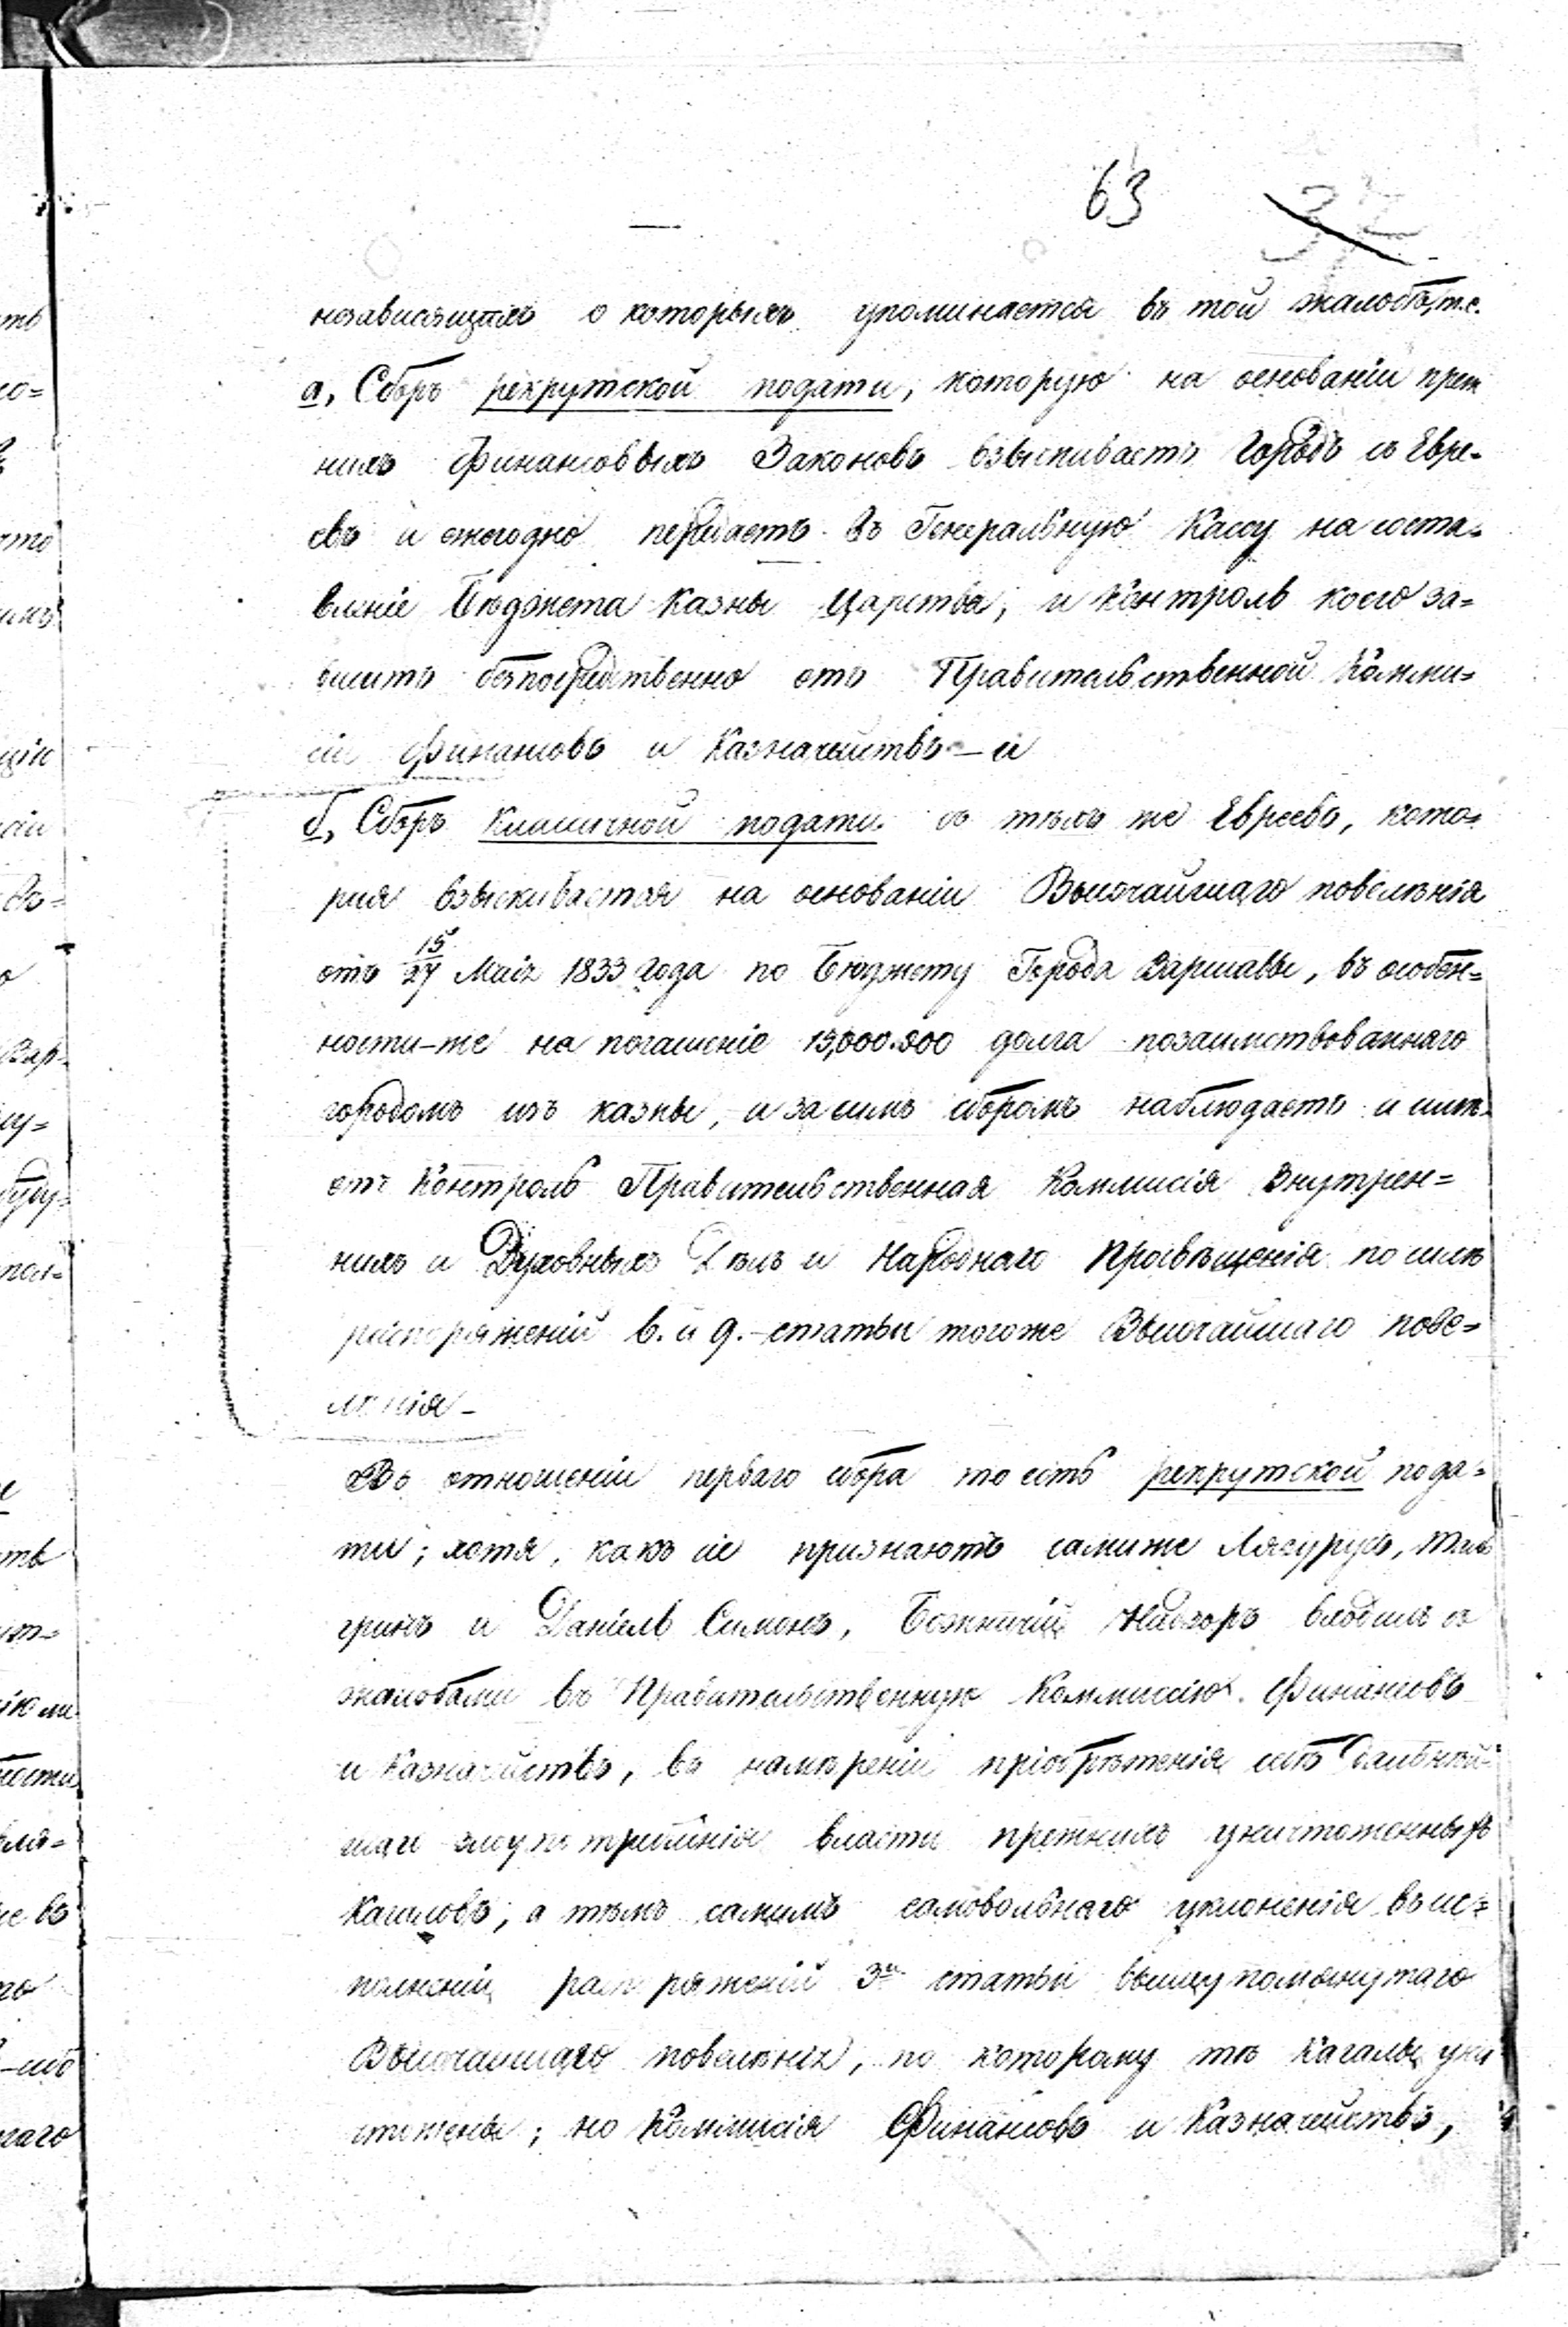 63
независящихъ о которыхъ упоминается въ той жалобѣ, т.е.
а, Сборъ рекрутской подати, которую на основаніи преж
нихъ Финансовыхъ Законовъ взыскиваетъ Городъ съ Евре-
евъ и ежегодно передаетъ въ Генеральную Кассу на соста-
вленіе Бюджета Казны Царства, и Контроль коего за-
виситъ безпосредственно отъ Правительственной Комми-
сіи Финансовъ и Казначействъ – и
б, Сборъ класичной подати съ тѣхъ же Евреевъ, кото-
рия взыскивается на основаніи Высочайшаго повелѣнія
отъ 15/27 Маія 1833 года по Бюджету Города Варшавы, въ особен-
ности-же на погашеніе 15,000.000 долга позаимствованнаго
городомъ изъ казны, и за симъ сборомъ наблюдаетъ и имѣ-
етъ Контроль Правительственная Коммисія Внутрен-
нихъ и Духовныхъ Дѣлъ и Народнаго Просвѣщенія по силѣ
распоряженій 6. и 9. статьи тогоже Высочайшаго пове-
лѣнія –
Въ отношеніи перваго сбора то есть рекрутской пода-
ти; хотя, какъ сіе признаютъ самиже
и Даніель Симонъ, Божничій Надзоръ входилъ съ
жалобами въ Правительственную Коммиссію Финансовъ
и Казначействъ, въ намѣреніи пріобрѣтенія себѣ дальнѣй-
шаго злоупотребленія власти прежнихъ уничтоженныхъ
Кагаловъ, а тѣмъ самимъ самовольнаго уклоненія въ ис-
полненіи распоряженій 3й статьи вышеупомянутаго
Высочайшаго повелѣнія, по которому тѣ Кагалы уни
чтожены; но Коммисія Финансовъ и Казначействъ,